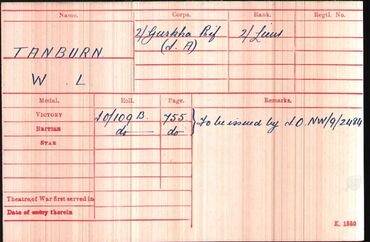 Name. Corps. Rank. Regtl. No.
TANBURN 2/Gurkha Rif 2/Lieut
W. L (I. A)
Medal. Roll. Page. Remarks.
VICTORY IO/109 B. 755 } To be issued by I.O. NW/9/2484
BRITISH do do
STAR
Theatre of War first served in
Date of entry therein
K. 1380